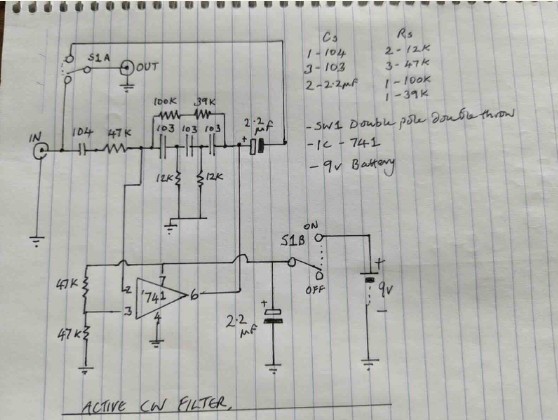 Cs Rs
1-104 2-12K
3-103 3-47K
2-2.2µF 1-100K
1-39K
-SW1 Double pole double throw
-IC-741
-9v Battery
S1A
OUT
100K 39K
2.2
µF
+
IN
104 47K
103 103 103
12K 12K
ON
S1B
OFF
+
9v
-
47K
47K
7
2
'741
6
3
4
+
2.2
µF
ACTIVE CW FILTER.